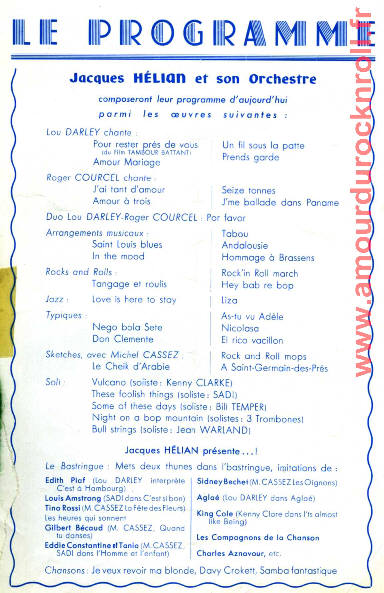 LE PROGRAMME
Jacques HÉLIAN et son Orchestre
composeront leur programme d'aujourd'hui
parmi les œuvres suivantes :
Lou DARLEY chante :
Pour rester près de vous
(du Film TAMBOUR BATTANT)
Amour Mariage
Un fil sous la patte
Prends garde
Roger COURCEL chante :
J'ai tant d'amour
Amour à trois
Seize tonnes
J'me ballade dans Paname
Duo Lou DARLEY-Roger COURCEL : Por favor
Arrangements musicaux :
Saint Louis blues
In the mood
Tabou
Andalousie
Hommage à Brassens
Rocks and Rolls :
Tangage et roulis
Rock'in Roll march
Hey bab re bop
Jazz : Love is here to stay
Liza
Typiques :
Nego bola Sete
Don Clemente
As-tu vu Adèle
Nicolasa
El rico vacillon
Sketches, avec Michel CASSEZ :
Le Cheik d'Arabie
Rock and Roll mops
A Saint-Germain-des-Prés
Soli : Vulcano (soliste : Kenny CLARKE)
These foolish things (soliste : SADI)
Some of these days (soliste : Bill TEMPER)
Night on a bop mountain (solistes : 3 Trombones)
Bull strings (soliste : Jean WARLAND)
Jacques HÉLIAN présente...!
Le Bastringue : Mets deux thunes dans l'bastringue, imitations de :
Edith Piaf (Lou DARLEY interprète
C'est à Hambourg)
Louis Amstrong (SADI dans C'est si bon)
Tino Rossi (M. CASSEZ La fête des Fleurs)
Les heures qui sonnent
Gilbert Bécaud (M. CASSEZ, Quand
tu danses)
Eddie Constantine et Tania (M. CASSEZ,
SADI dans l'Homme et l'enfant)
Sidney Bechet (M. CASSEZ Les Oignons)
Aglaé (Lou DARLEY dans Aglaé)
King Cole (Kenny Clare dans It's almost
like Being)
Les Compagnons de la Chanson
Charles Aznavour, etc.
Chansons : Je veux revoir ma blonde, Davy Crokett, Samba fantastique
www.amourdurocknroll.fr